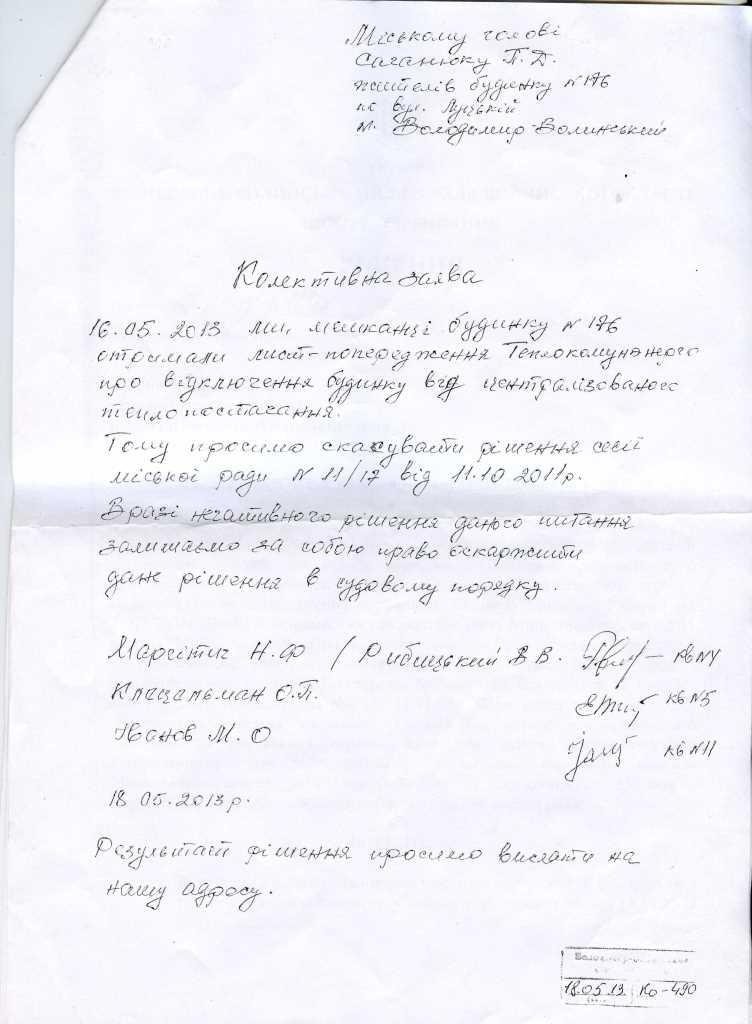 Міському голові
Саганюку П. Д.
жителів будинку № 176
по вул. Луцькій
м. Володимир-Волинський
Колективна заява
16.05.2013 ми, мешканці будинку № 176
отримали лист-попередження Теплокомуненерго
про відключення будинку від централізованого
теплопостачання.
Тому просимо скасувати рішення сесії
міської ради № 11/17 від 11.10 2011р.
В разі негативного рішення даного питання
залишаємо за собою право оскаржити
дане рішення в судовому порядку.
Марсітич Н. Ф / Рибицький В В. кв №4
Клацальман О.П. кв №5
Іванов М. О кв №11
18 05.2013р.
Результат рішення просимо вислати на
нашу адресу.
18.05.13 Ко-490